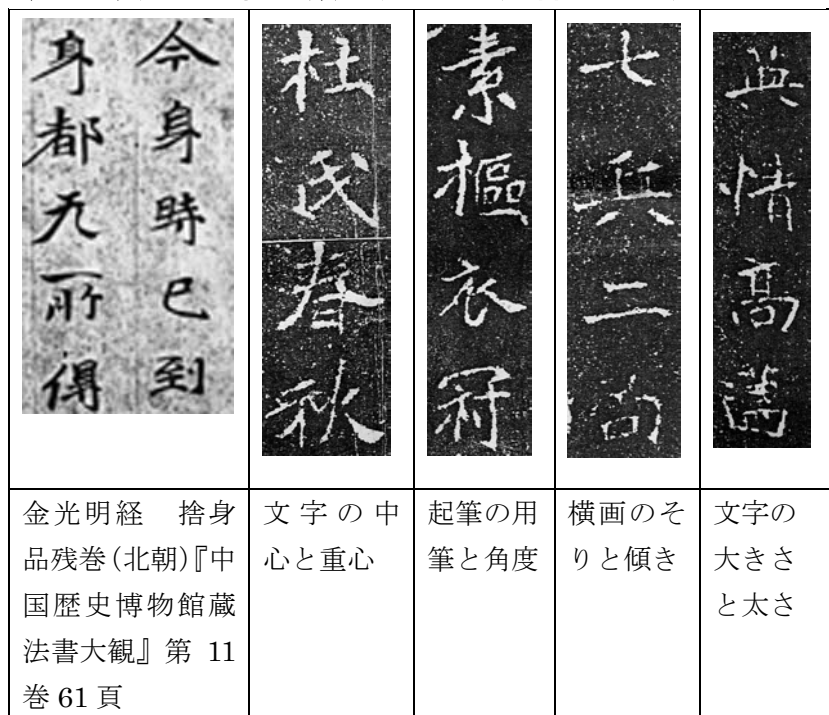 今身時已到
身都无所得
杜氏春秋
素樞衣冠
七兵二尚
情高
金光明経　捨身
品残巻(北朝)『中
国歴史博物館蔵
法書大観』第 11
巻 61 頁
文字の中
心と重心
起筆の用
筆と角度
横画のそ
りと傾き
文字の
大きさ
と太さ